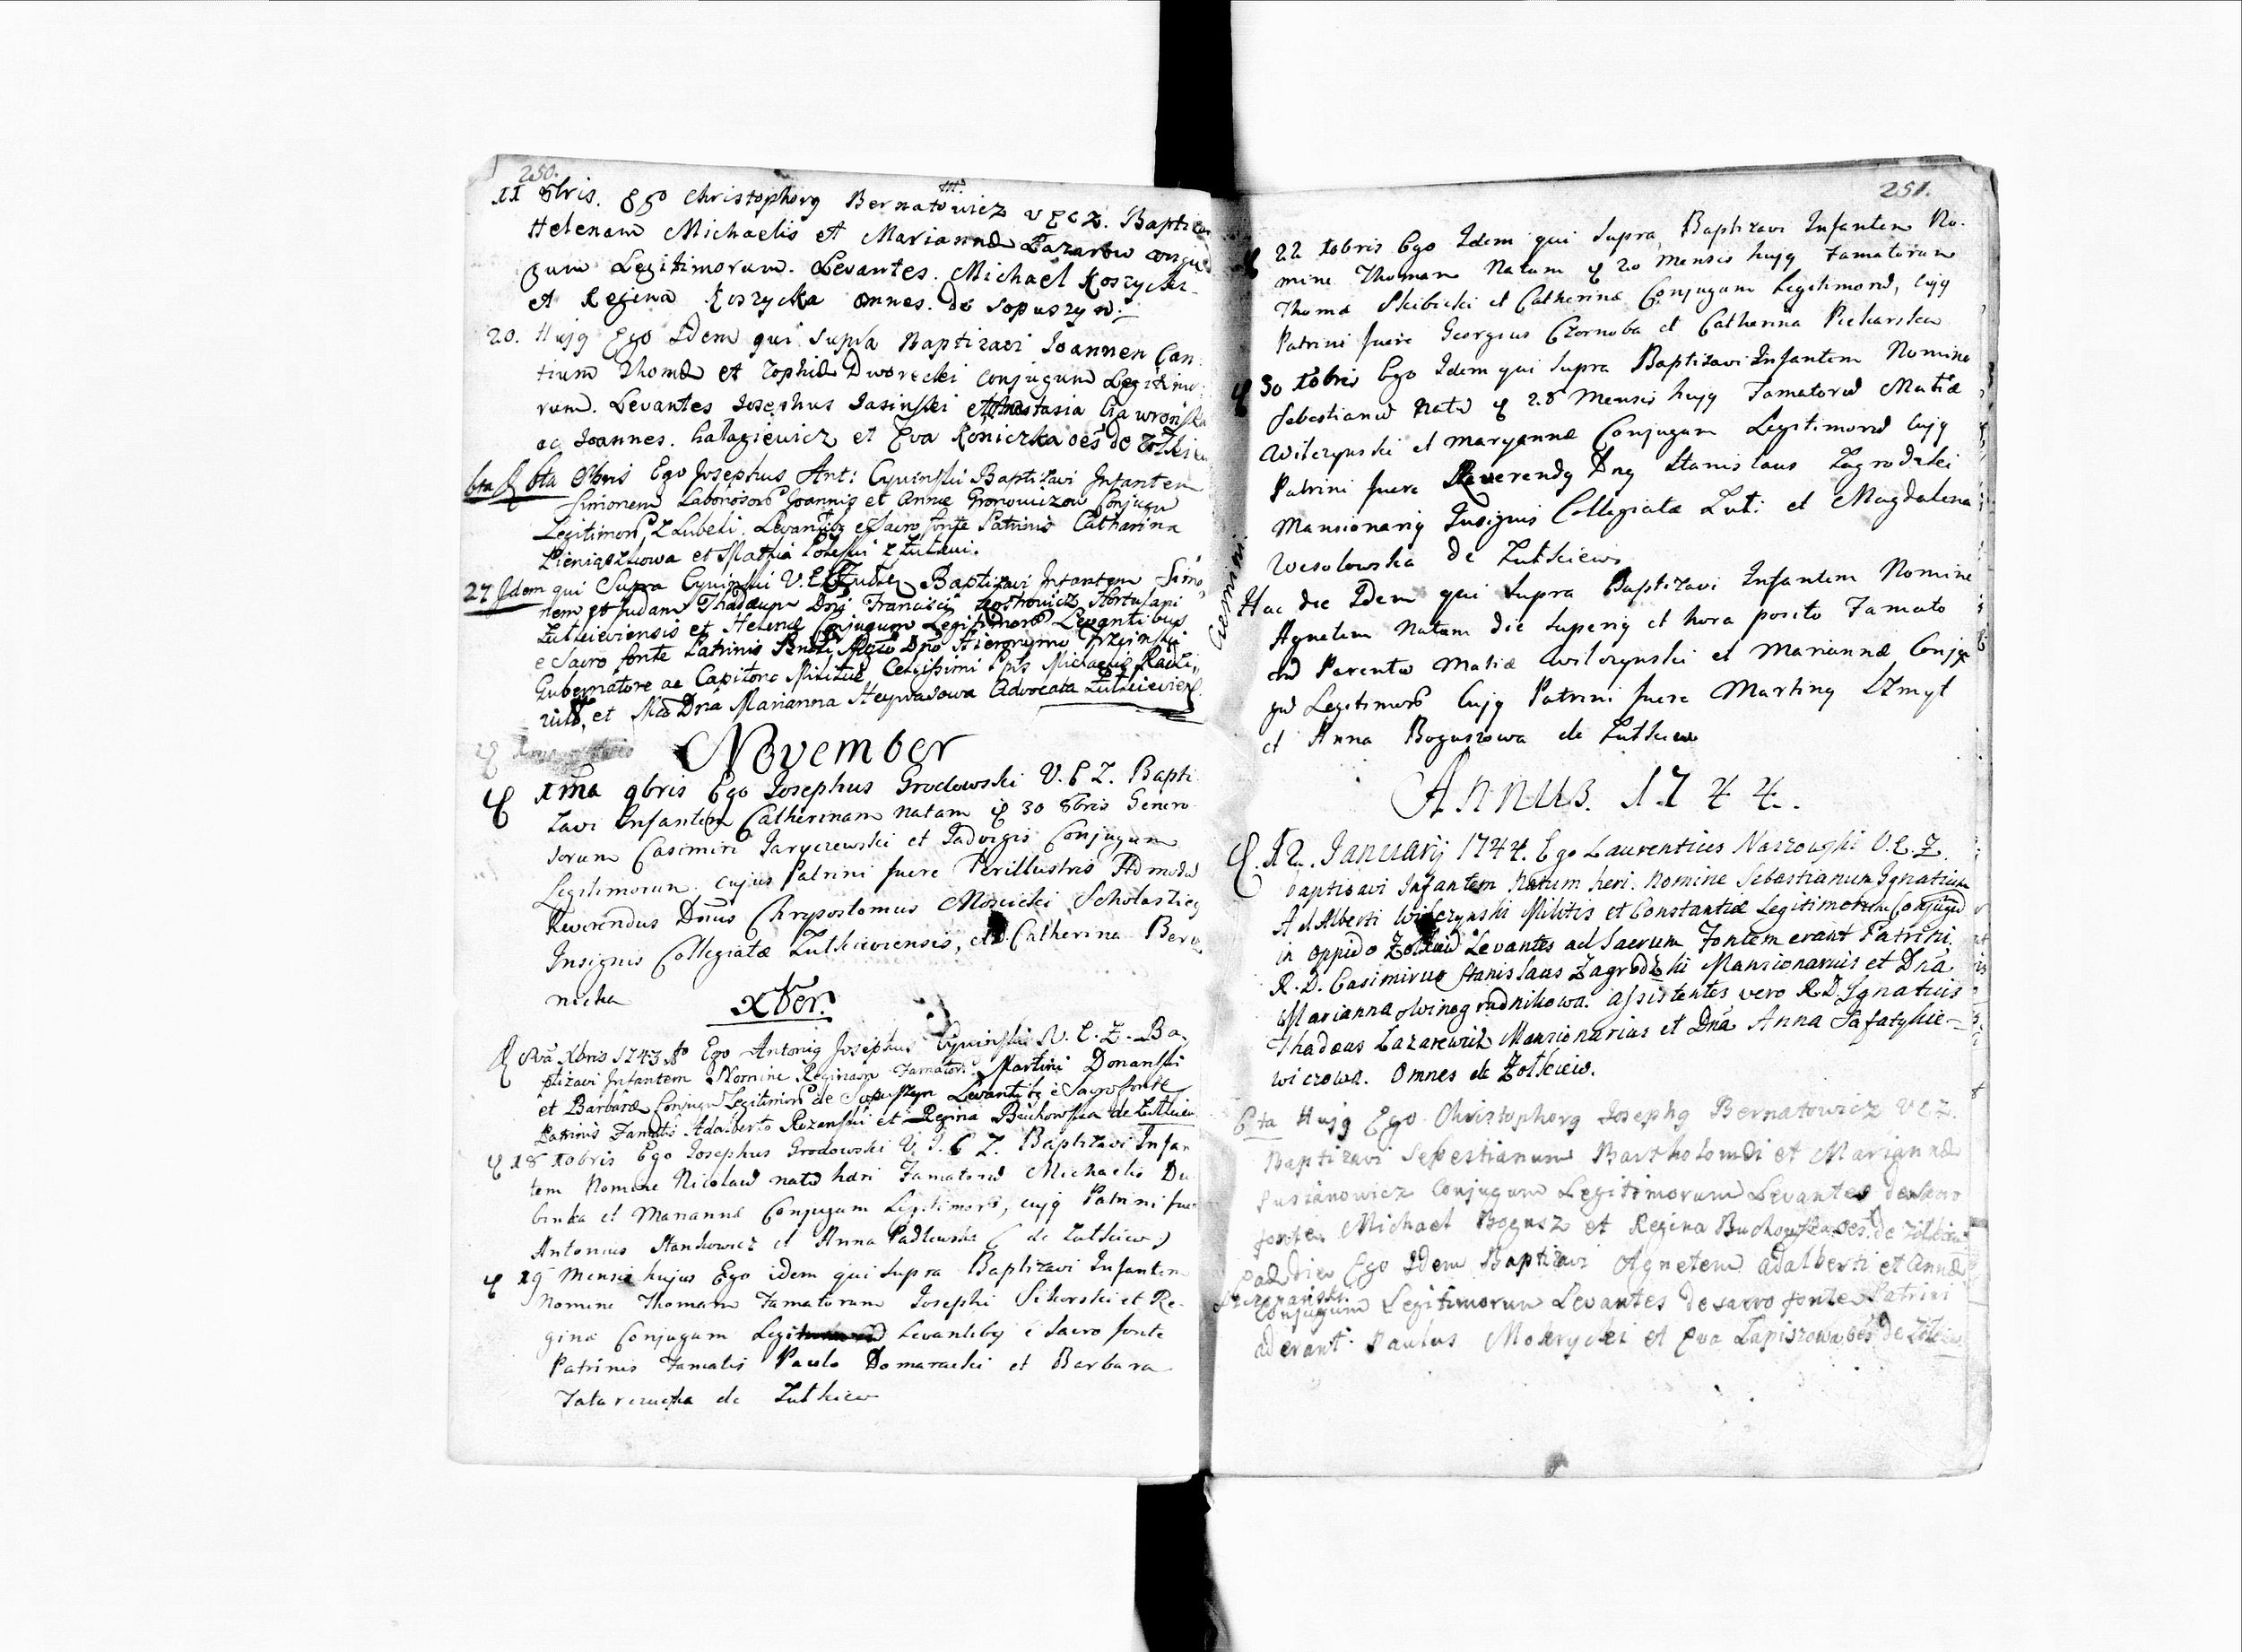 250.
11 8bris. Ego Christophorg Bernatowicz V C Z. Baptizavi
Helenam Michaelis et Mariannæ Lazarow conju
gum Legitimorum. Levantes. Michael Koszycki
et Regina Koszycka omnes. de Sopuszyn.
20. Hujg Ego Idem qui Supra Baptizavi Joannen Can
tium Thomæ et Zophiæ Dworecki conjugum Legitimo
rum. Levantes Josephus Jasinski et Anastasia Gawrońska
ac Joannes. Galagiewicz et Eva Koniczka oēs de Zolkiew
6ta 8bris Ego Josephus Ant: Cywinski Baptizavi Infantem
Simonem Laboriosor Joannis et Annæ Conjugu
Legitimor, Z Lubeli. Levantibg e Sacro fonte Patrinis Catharina
Pieniąszkowa et Mathia
27 Idem qui Supra Cywinski V. Baptizavi Infantem Simo
nem et Judam Thadæum Dni Francisci Hortulani
Zulkieviensis et Helenæ Conjugum Legitimor Levantibus
e Sacro fonte Patrinis Dno Hieronymo
Gubernatore ac Capitono Militiæ Celsissimi Ppis Michaelis Radzi,,
et Dna Marianna Heywasowa Advocata Zulkievien
November
1ma 9bris Ego Josephus Grodowski V. C Z. Bapti
zavi Infantem Catherinam natam 30 8bris Genero
sorum Casimiri Jaryczewski et Jadvigis Conjugum
Legitimorum. cujus Patrini fuere Perillustris Admodu
Reverendus Dnus Chrysostomus Mosicki Scholasticg
Insignis Collegiatæ Zulkieviensis, et Catherina Ber
nicka
xber.
8va Xbris 1743 Ao Ego Antonig Josephus Cywinski V. C. Z. Ba,
ptizavi Infantem Nomine Reginam Famator. Martini Donanski
et Barbaræ Conjugu Legitimor de Sopuszyn Levantibg e Sacro fonte
Patrinis Famatis Adalberto Rozanski et Regina Buchowska de Zulkiew
18 xobris Ego Josephus Grodowski V. C Z. Baptizavi Infan
tem Nomine Nicolau natu heri Famatoru Michaelis Du
binka et Mariannæ Conjugum Legitimor, cujg Patrini fuere
Antonius Stankowicz et Anna Padlewska ( de Zulkiew )
19 Mensis hujus Ego idem qui supra Baptizavi Infantem
Nomine Thomam Famatorum Josephi Sikorski et Re-
ginæ Conjugum Legi Levantibg e Sacro fonte
Patrinis Famatis Paulo Domaracki et Barbara
de Zulkiew
251.
22 xobris Ego Idem qui supra Baptizavi Infantem No-
mine Thomam Natum 20 Mensis hujg Famatorum
Thomæ Skibicki et Catherinæ Conjugum Legitimoru, cujg
Patrini fuere Georgius Czornoba et Catherina Piekarska
30 xobris Ego Idem qui supra Baptizavi Infantem Nomine
Sebestianu Natu 28 Mensis hujg Famatoru Matiæ
Wilczynski et Maryannæ Conjugum Legitimoru Cujg
Patrini fuere Reverendg Dng Stanislaus Zagrodzki
Mansionarig Insignis Collegiatæ Zul: et Magdalena
Wesolowska de Zulkiew
Gemini
Hac die Idem qui supra Baptizavi Infantem Nomine
Agnetem natam die superig et hora posito Famato
ru Parentu Matiæ Wilczynski et Mariannæ Conju
gu Legitimor Cujg Patrini fuere Marting Szmyt
et Anna Boguszowa de Zulkiew
Annus. 1744.
12. Januarij 1744. Ego Laurentius V. C. Z.
baptisavi Infantem Natum heri. Nomine Sebastianum Ignatium
Adalberti Wilczynski Militis et Constantiæ Legitimorum Conjugu
in oppido Levantes ad Sacrum Fontem erant Patrini.
R. D. Casimirus Stanislaus Zagrodzki Mansionarius et Dna
Marianna Winogradnikowa. assistentes vero R. D. Ignatius
Thadæus Lazarewicz Mansionarius et Dna Anna Tafatykie-
wiczowa. Omnes de Zolkiew.
6ta Hujg Ego Christophorg Josephg Bernatowicz V C Z.
Baptizavi Sebestianum Bartholomæi et Mariannæ
Pusianowicz Conjugum Legitimorum Levantes de sacro
fonte. Michael Bogusz et Regina Buchowska oēs. de Zolkiew
Eadem die Ego Idem Baptizavi Agnetem adalberti et Annæ
Szczepanski
Conjugum Legitimorum Levantes de sacro fonte Patrini
aderant. Paulus Mokrycki et Eva Lapiszowa oēs de Zolkiew